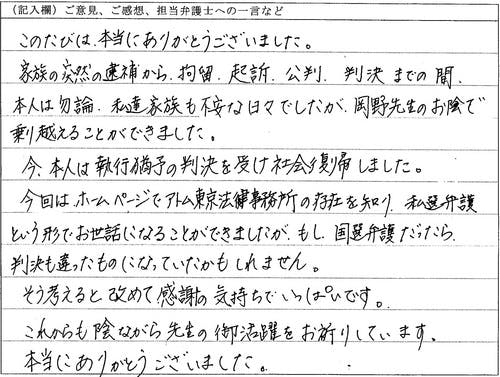 (記入欄) ご意見、ご感想、担当弁護士への一言など
このたびは、本当にありがとうございました。
家族の突然の逮捕から、拘留、起訴、公判、判決までの間、
本人は勿論、私達家族も不安な日々でしたが、岡野先生のお陰で
乗り越えることができました。
今、本人は執行猶予の判決を受け社会復帰しました。
今回は、ホームページでアトム東京法律事務所の存在を知り、私選弁護
という形でお世話になることができましたが、もし、国選弁護だったら、
判決も違ったものになっていたかもしれません。
そう考えると改めて感謝の気持ちでいっぱいです。
これからも陰ながら先生の御活躍をお祈りしています。
本当にありがとうございました。